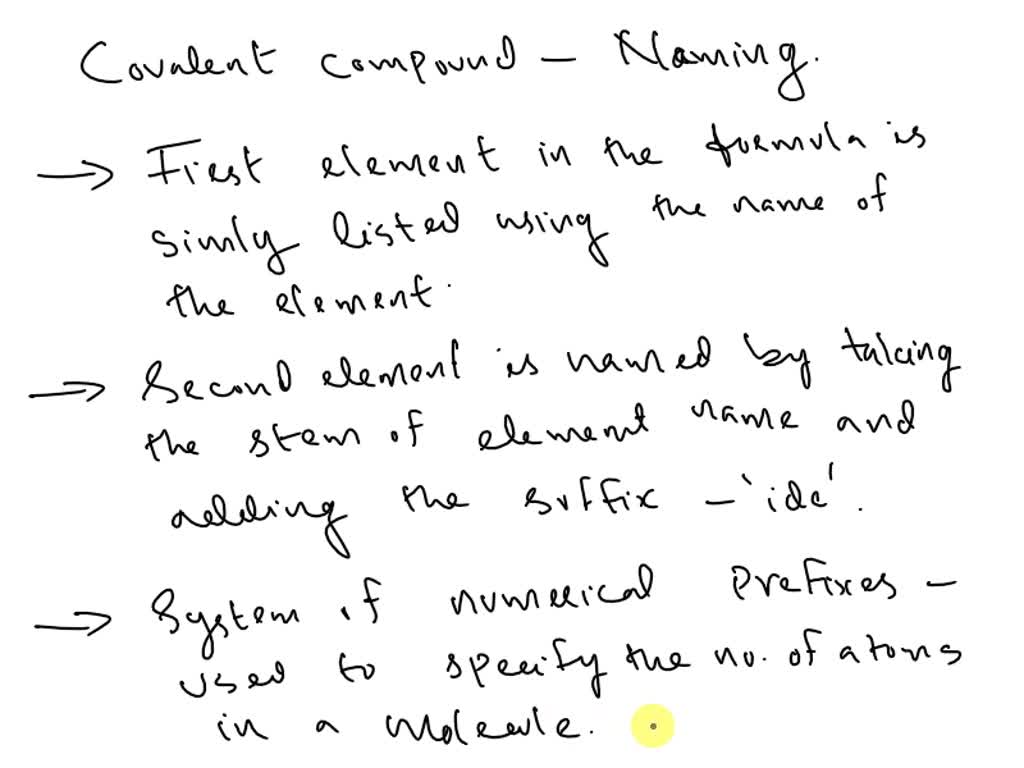 Covalent compound – Naming.
→ First element in the formula is
simly listed using the name of
the element.
→ Second element is named by taking
the stem of element name and
adding the suffix – 'ide'.
→ System of numerical prefixes –
used to specify the no. of atoms
in a molecule.